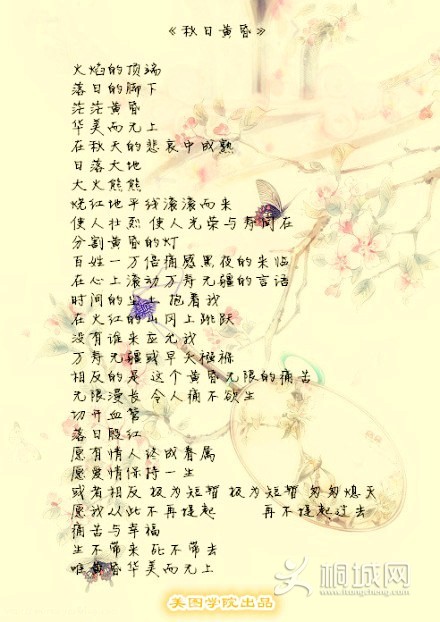 《秋日黄昏》
火焰的顶端
落日的脚下
茫茫黄昏
华美而无上
在秋天的悲哀中成熟
日落大地
大火熊熊
烧红地平线滚滚而来
使人壮烈 使人光荣与寿同在
分割黄昏的灯
百姓一万倍痛感黑夜的来临
在心上滚动万寿无疆的言语
时间的尘土 抱着我
在火红的山冈上跳跃
没有谁来应允我
万寿无疆或早夭襁褓
相反的是 这个黄昏无限的痛苦
无限漫长 令人痛不欲生
切开血管
落日殷红
愿有情人终成眷属
愿爱情保持一生
或者相反 极为短暂 极为短暂 匆匆熄灭
愿我从此不再提起 再不提起过去
痛苦与幸福
生不带来 死不带去
唯黄昏华美而无上
桐城网
www.itongcheng.com
美图学院出品